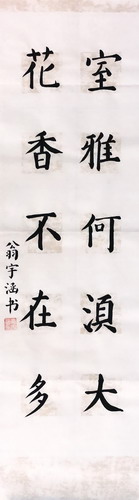 室雅何湏大
花香不在多
翁宇涵书